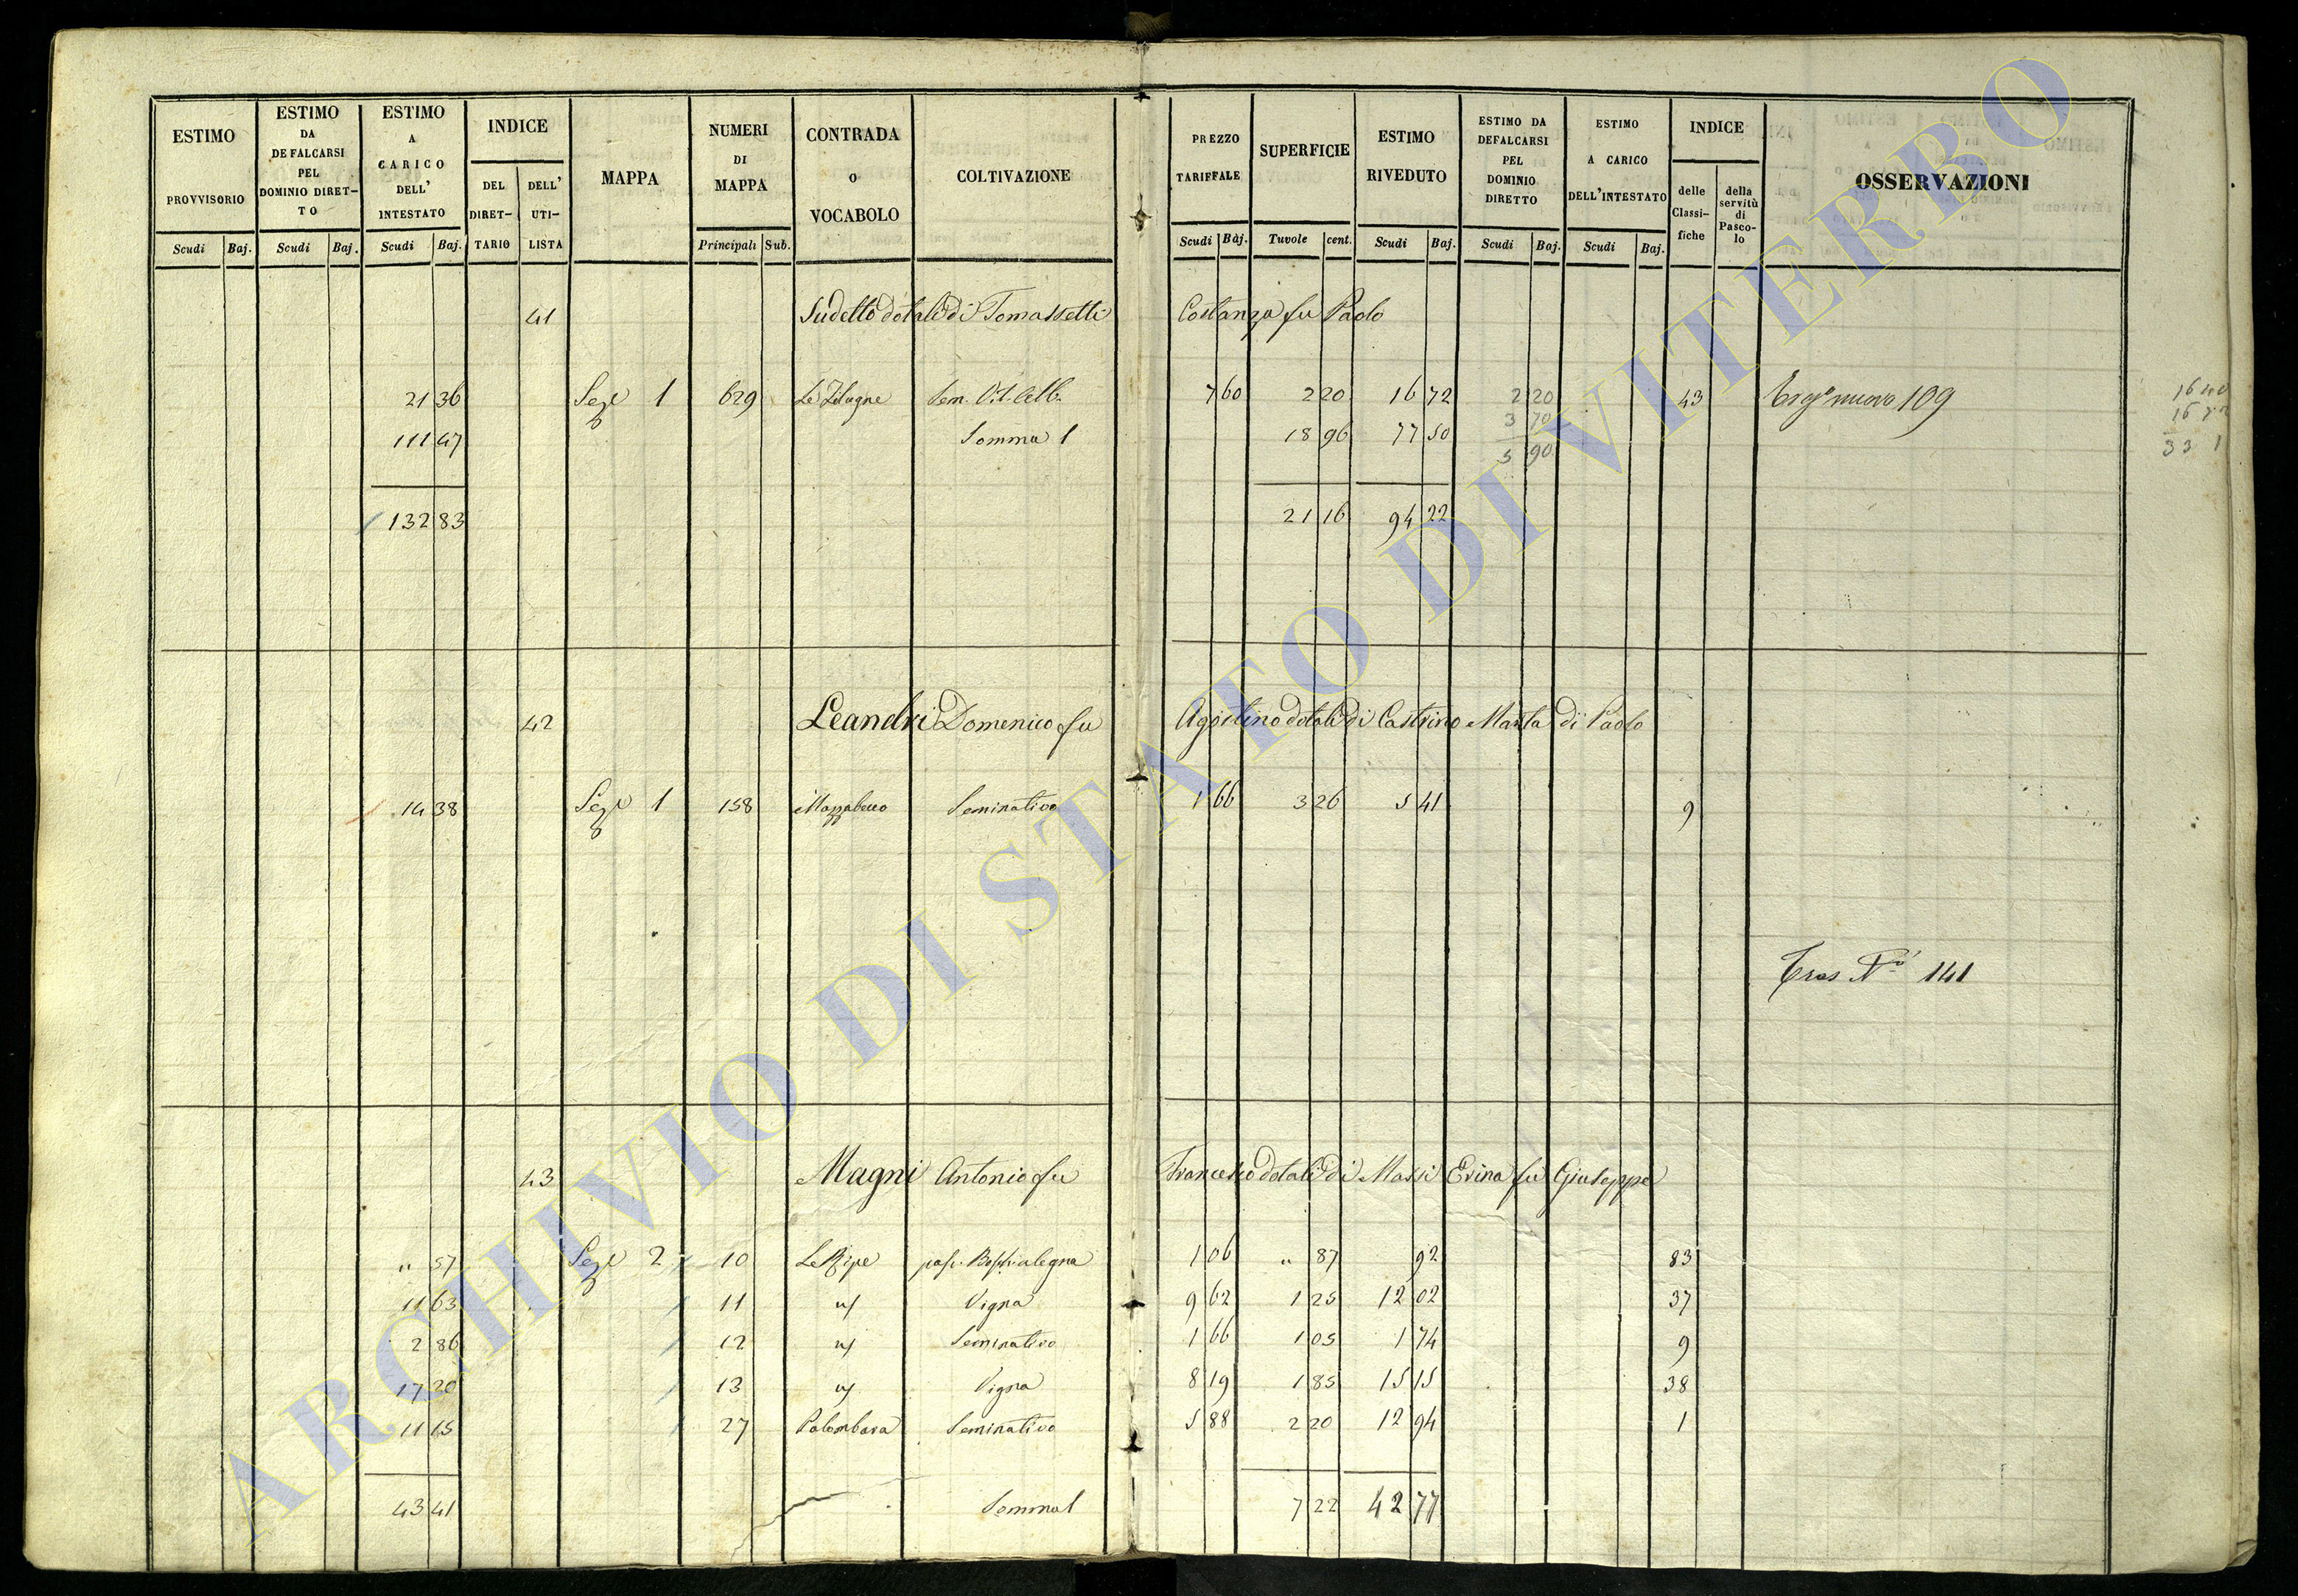 ESTIMO PROVVISORIO Scudi Baj.
ESTIMO DA DEFALCARSI PEL DOMINIO DIRET-TO Scudi Baj.
ESTIMO A CARICO DELL' INTESTATO Scudi Baj.
INDICE DEL DIRET-TARIO DELL' UTI-LISTA
MAPPA
NUMERI DI MAPPA Principali Sub.
CONTRADA O VOCABOLO
COLTIVAZIONE
PREZZO TARIFFALE Scudi Baj.
SUPERFICIE Tavole cent.
ESTIMO RIVEDUTO Scudi Baj.
ESTIMO DA DEFALCARSI PEL DOMINIO DIRETTO Scudi Baj.
ESTIMO A CARICO DELL'INTESTATO Scudi Baj.
INDICE delle Classi-fiche della servitù di Pasco-lo
OSSERVAZIONI
41 Sudetto dotali di Tomassetti Costanza fu Paolo
21 36 Sez.e 1 629 Sem. 7 60 2 20 16 72 2 20 43 nuovo 109
3 70
111 47 Somma 1 18 96 77 50
5 90
33 1
132 83 21 16 94 22
42 Leandri Domenico fu Agostino dotali di Castrino Marta di Paolo
14 38 Sez.e 1 158 Seminativo 1 66 3 26 5 41 9
Tras N.o 141
43 Magni Antonio fu Francesco dotali di Massi Erina fu Giuseppe
" 57 Sez.e 2 10 Le Ripe 1 06 " 87 92 83
11 63 11 Vigna 9 62 1 25 12 02 37
2 86 12 Seminativo 1 66 1 05 1 74 9
17 20 13 Vigna 8 19 1 85 15 15 38
11 15 27 Palombara Seminativo 5 88 2 20 12 94 1
43 41 Somma 1 7 22 42 77
ARCHIVIO DI STATO DI VITERBO